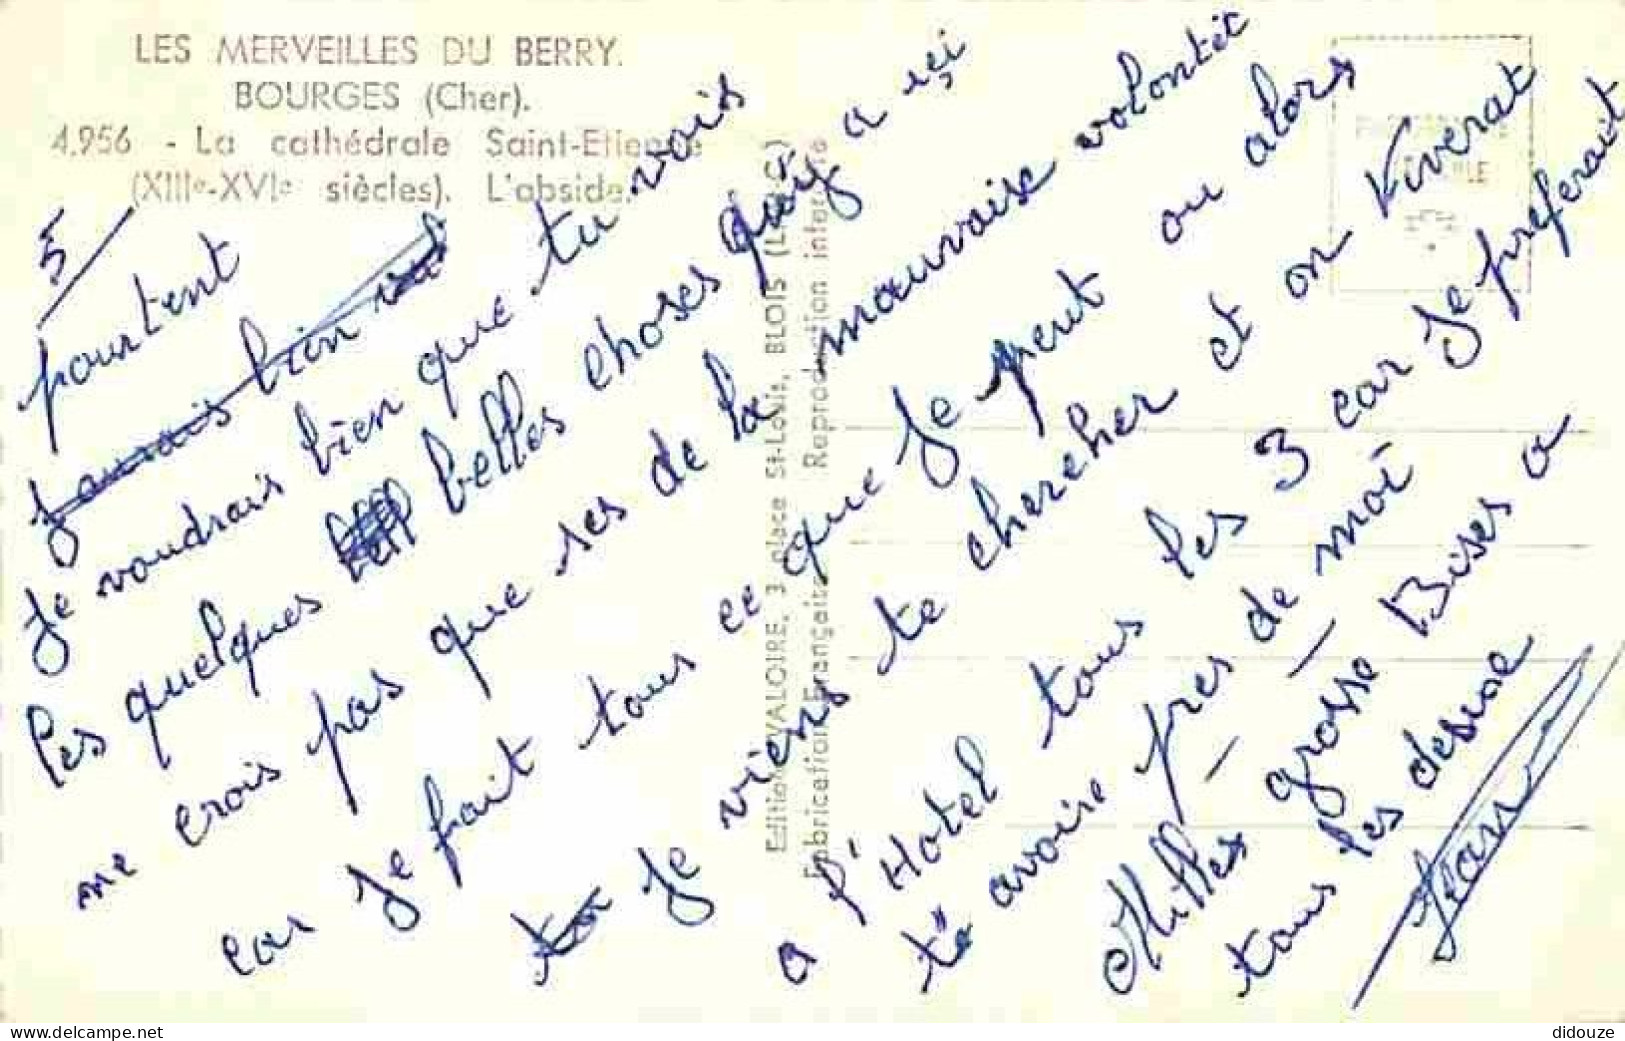 LES MERVEILLES DU BERRY.
BOURGES (Cher).
4.956 - La cathédrale Saint-Etienne
(XIIIe-XVIe siècles). L'abside.
5
pourtent
Jaurais bien
Je voudrais bien que tu vois
les quelques belles choses quiy a içi
me crois pas que ses de la mauvaise volontéé
car Je fait tous ce que Je peut ou alors
Je viens te chercher et on Viverat
a l'Hotel tous les 3 car Je preferait
te avoire pres de moi
Milles grosse Bises a
tous les desuse
Jean
Editions VALOIRE, 3 place St-Louis, BLOIS (L.-&-C.)
Fabrication Française Reproduction interdite
didouze